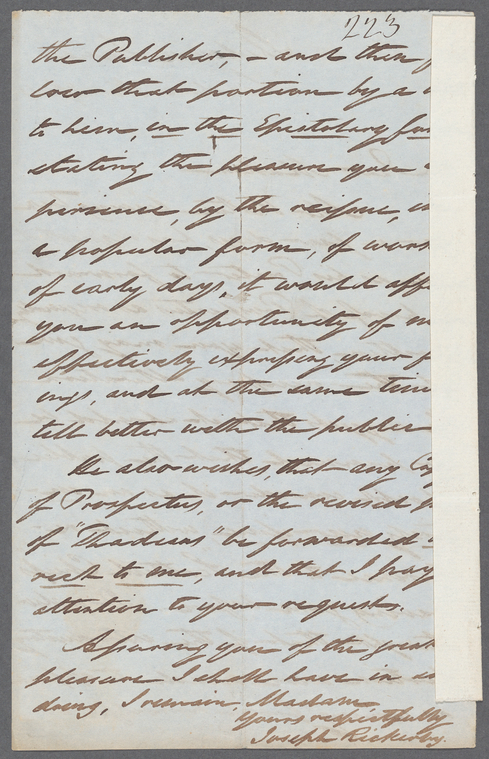 223
the Publisher, – and then
lover that portion by a
to him, in the Epistolary
stating the pleasure you
by the reissue,
a popular form, of
of early days, it would
you an opportunity of
effectively expressing your
ings, and at the same
tell better with the public
He also wishes, that any
of Prospectus, or the revised
of "Thadeus" be forwarded
rect to me, and that I
attention to your requests.
Assuring you of the
pleasure I shall have in
doing, I remain, Madam
Yours respectfully
Joseph Rickerby.